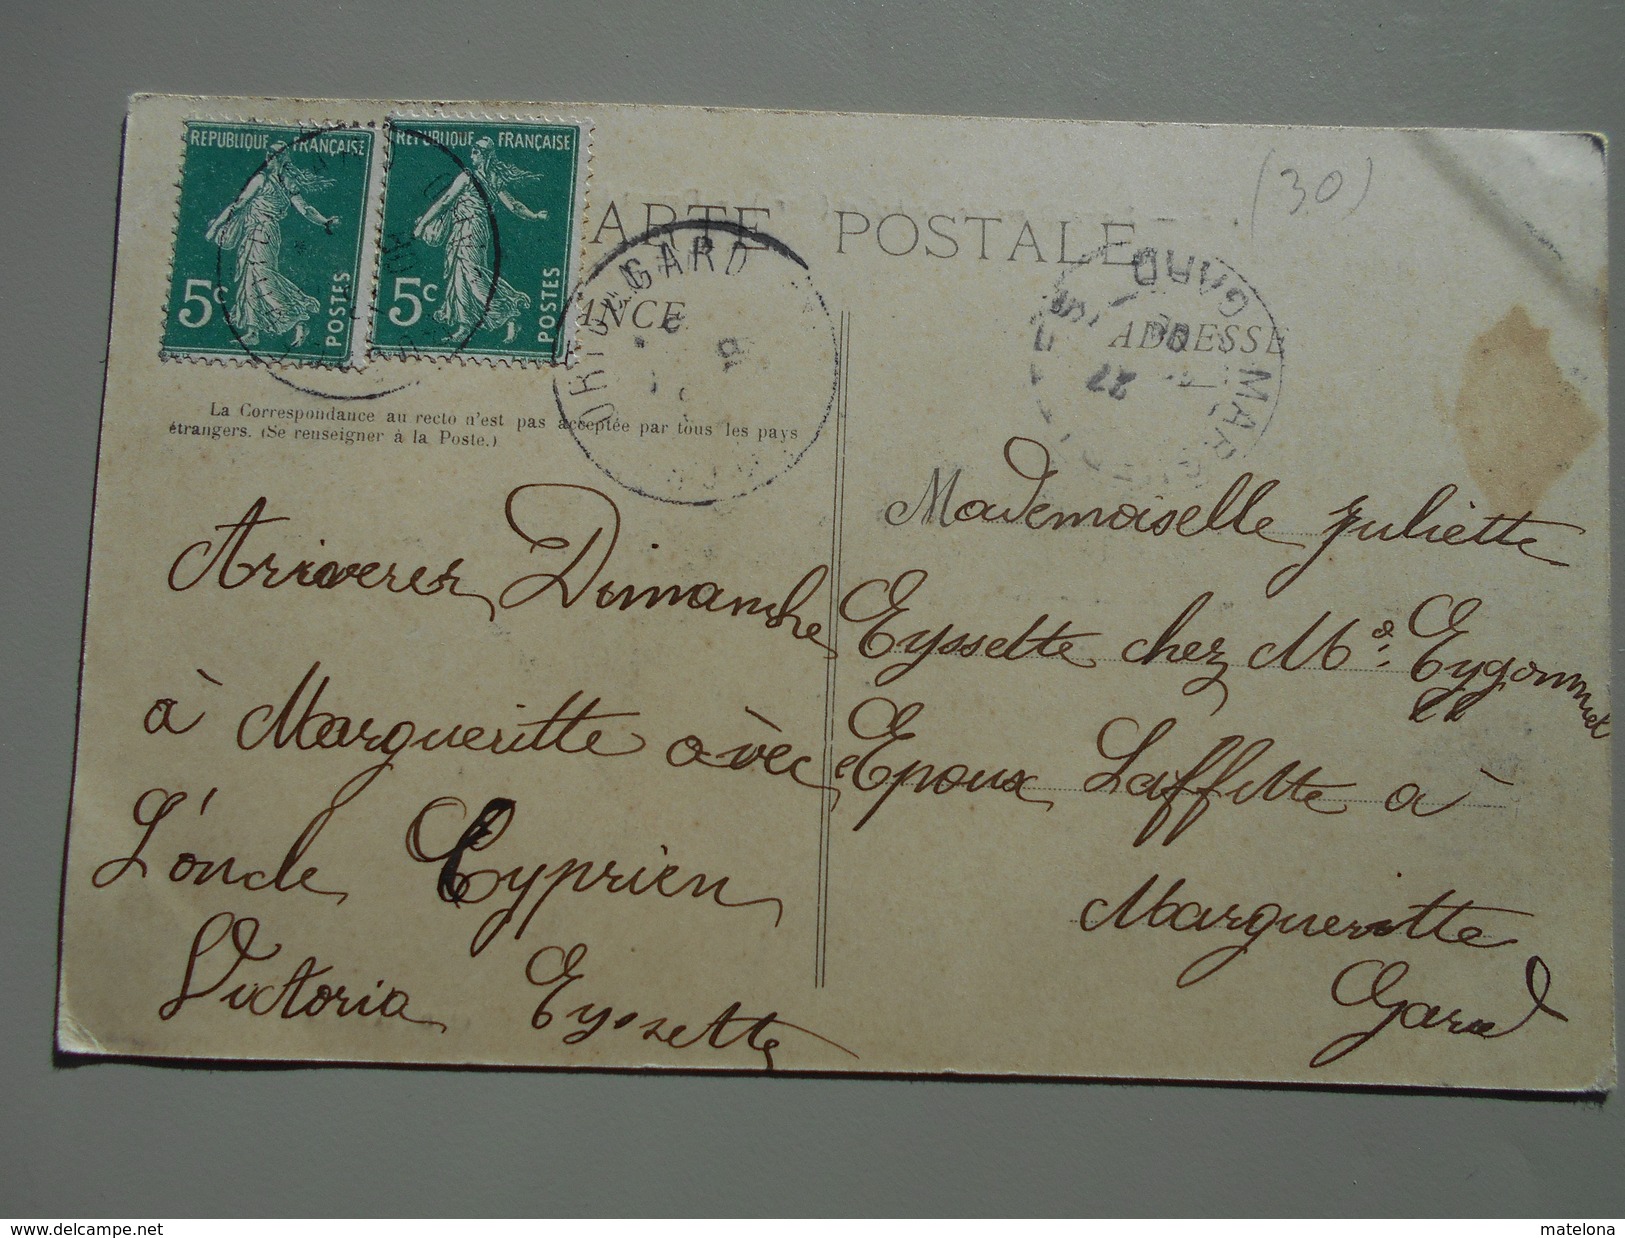 REPUBLIQUE FRANÇAISE
5c
POSTES
REPUBLIQUE FRANÇAISE
5c
POSTES
ARTE POSTALE
(30)
GARD
GARD
MAR
27
ANCE
ADRESSE
La Correspondance au recto n'est pas acceptée par tous les pays
étrangers. (Se renseigner à la Poste.)
Ariverez Dimanche
à Margueritte avec
L'oncle Cyprien
Victoria Eyssette
Mademoiselle Juliette
Eyssette chez Mr Eygonnet
Epoux Laffitte à
Margueritte
Gard
www.delcampe.net
matelona